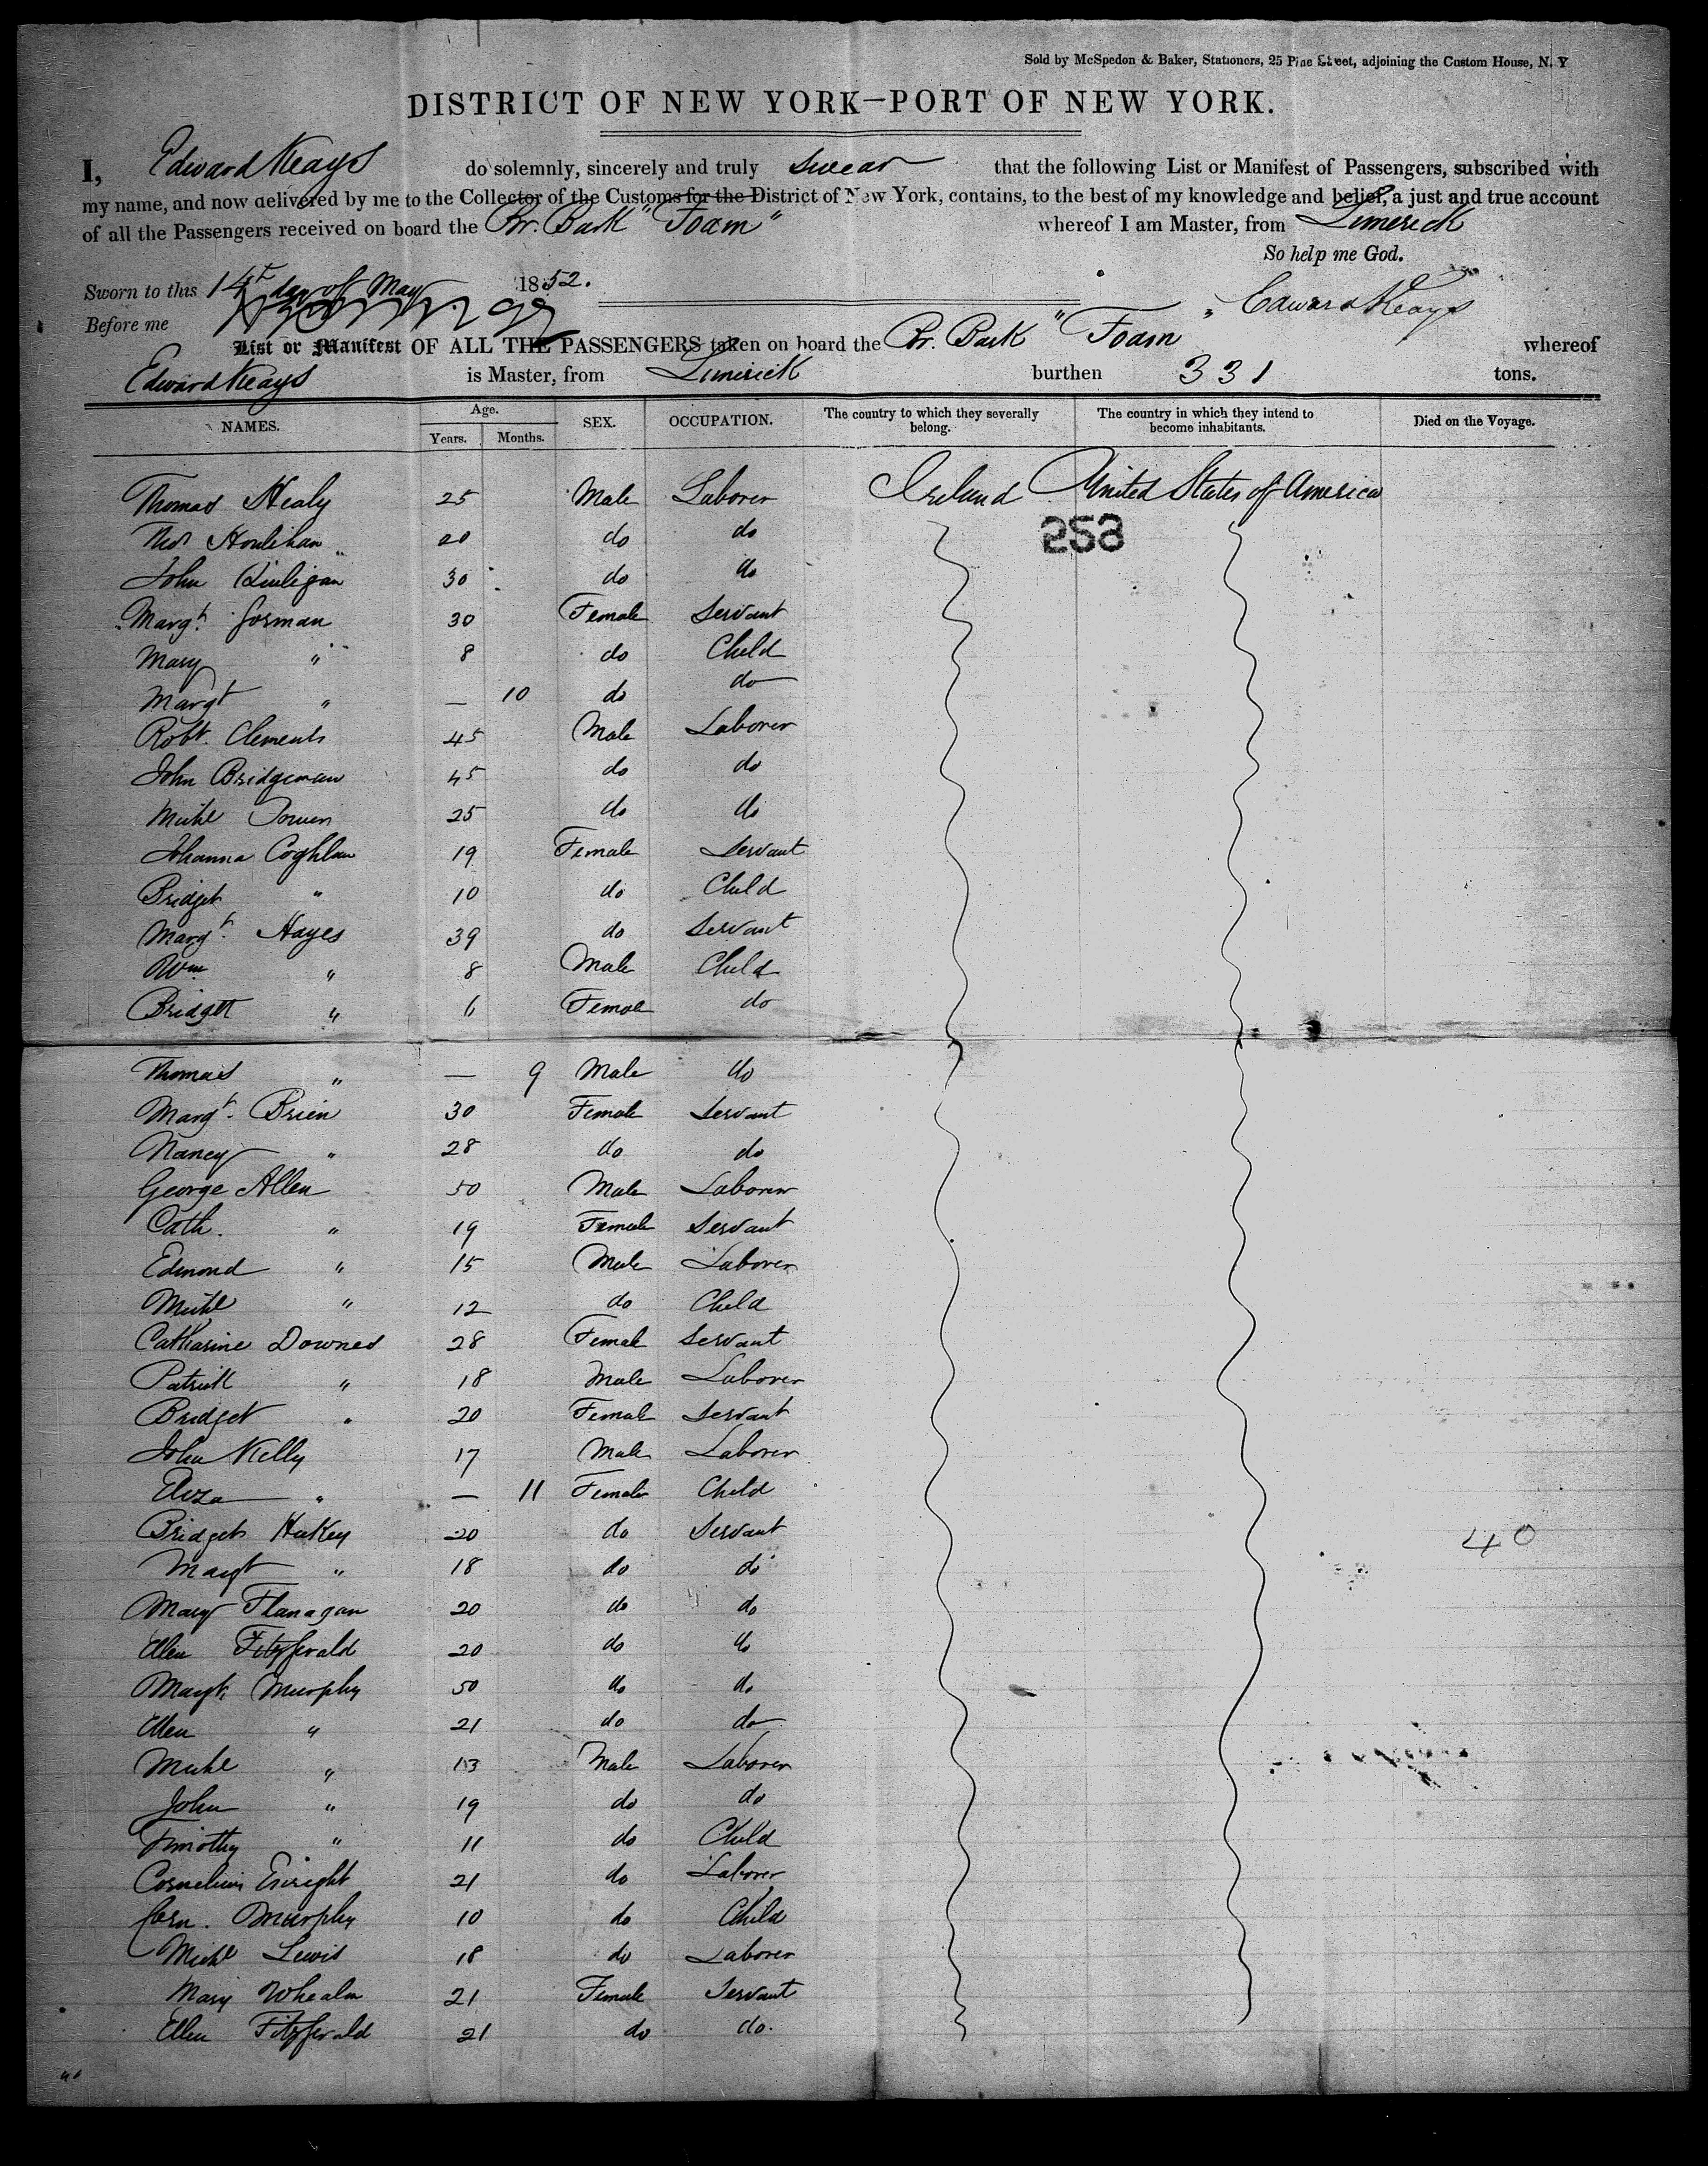 Sold by McSpedon & Baker, Stationers, 25 Pine Street, adjoining the Custom House, N. Y
DISTRICT OF NEW YORK—PORT OF NEW YORK.
I, Edward Keays do solemnly, sincerely and truly swear that the following List or Manifest of Passengers, subscribed with
my name, and now delivered by me to the Collector of the Customs for the District of New York, contains, to the best of my knowledge and belief, a just and true account
of all the Passengers received on board the Br. Bark "Foam" whereof I am Master, from Limerick
So help me God.
Sworn to this 14th day of May 1852.
Before me Edward Keays
List or Manifest OF ALL THE PASSENGERS taken on board the Br. Bark "Foam" whereof
Edward Keays is Master, from Limerick burthen 331 tons.
NAMES. Age. Years. Months. SEX. OCCUPATION. The country to which they severally belong. The country in which they intend to become inhabitants. Died on the Voyage.
Thomas Healy 25 Male Laborer Ireland United States of America
Thos Houlihan 20 do do
253
John Quiligan 30 do do
Margt. Gorman 30 Female Servant
Mary " 8 do Child
Margt " — 10 do do
Robt. Clements 45 Male Laborer
John Bridgeman 45 do do
Michl 25 do do
Johanna Coghlan 19 Female Servant
Bridget " 10 do Child
Margt. Hayes 39 do Servant
Wm " 8 Male Child
Bridgett " 6 Female do
Thomas " — 9 Male do
Margt. Brien 30 Female Servant
Nancy " 28 do do
George Allen 50 Male Laborer
Cath. " 19 Female Servant
Edmond " 15 Male Laborer
Michl " 12 do Child
Catharine Downes 28 Female Servant
Patrick " 18 Male Laborer
Bridget " 20 Female Servant
John Kelly 17 Male Laborer
Eliza " — 11 Female Child
Bridget Hickey 20 do Servant
40
Margt " 18 do do
Mary Flanagan 20 do do
Ellen Fitzgerald 20 do do
Margt. Murphy 50 do do
Ellen " 21 do do
Michl " 13 Male Laborer
John " 19 do do
Timothy " 11 do Child
Cornelius Enright 21 do Laborer
Corn. Murphy 10 do Child
Michl Lewis 18 do Laborer
Mary Whealan 21 Female Servant
Ellen Fitzgerald 21 do do.